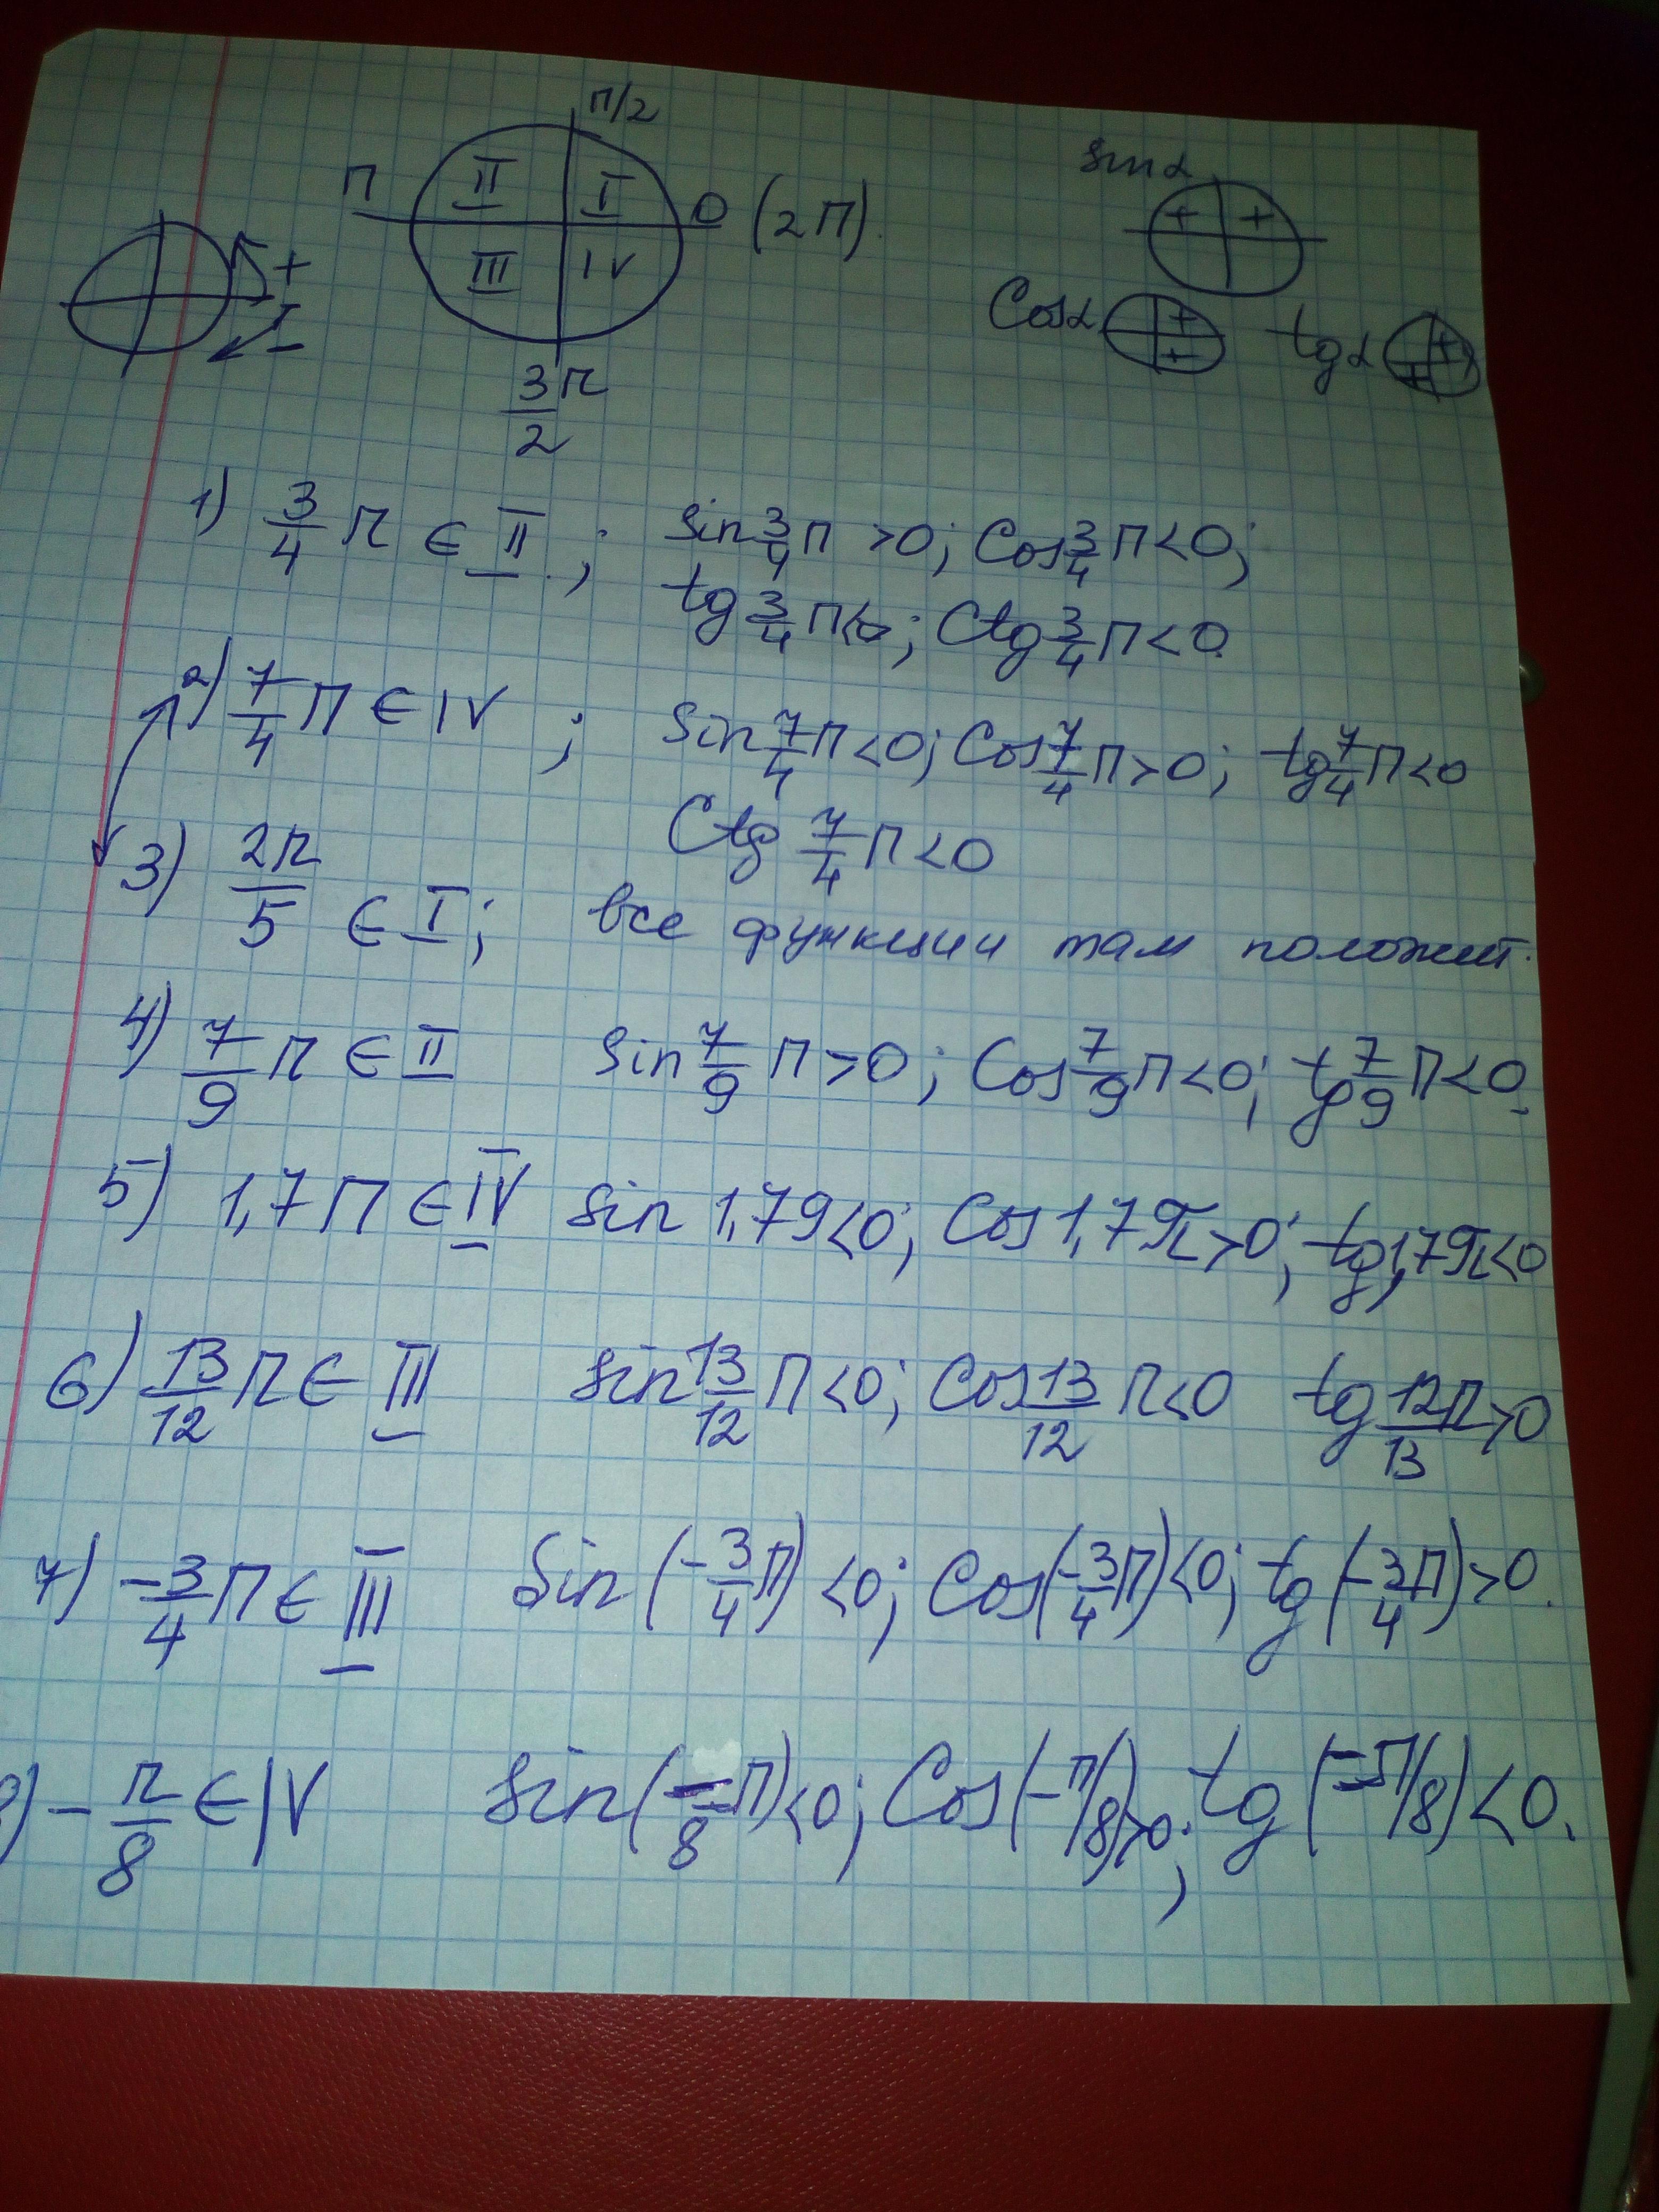 π/2
π II I 0 (2π).
III IV
+
-
3/2 π
sin α
+ +
cos α + +
tg α + +
1) 3/4 π ∈ II.; sin 3/4 π >0; Cos 3/4 π<0;
tg 3/4 π<0; Ctg 3/4 π<0.
2) 7/4 π ∈ IV ; Sin 7/4 π<0; Cos 7/4 π>0; tg 7/4 π<0
Ctg 7/4 π<0
3) 2π/5 ∈ I; все функции там положит.
4) 7/9 π ∈ II sin 7/9 π>0; Cos 7/9 π<0; tg 7/9 π<0.
5) 1,7π ∈ IV sin 1,79<0; Cos 1,7π>0; tg 1,7π<0
6) 13/12 π ∈ III sin 13/12 π<0; Cos 13/12 π<0 tg 12π/13>0
7) -3/4 π ∈ III Sin (-3/4 π) <0; Cos(-3/4 π)<0; tg (-3/4 π)>0.
) - π/8 ∈ IV sin(-/8 π)<0; Cos(-π/8)>0; tg (-π/8)<0.